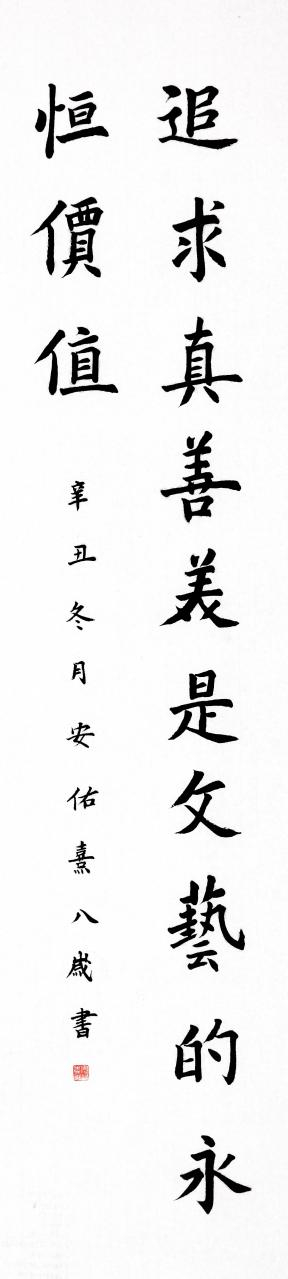 追求真善美是文藝的永
恒價值
辛丑冬月安佑熹八歲書